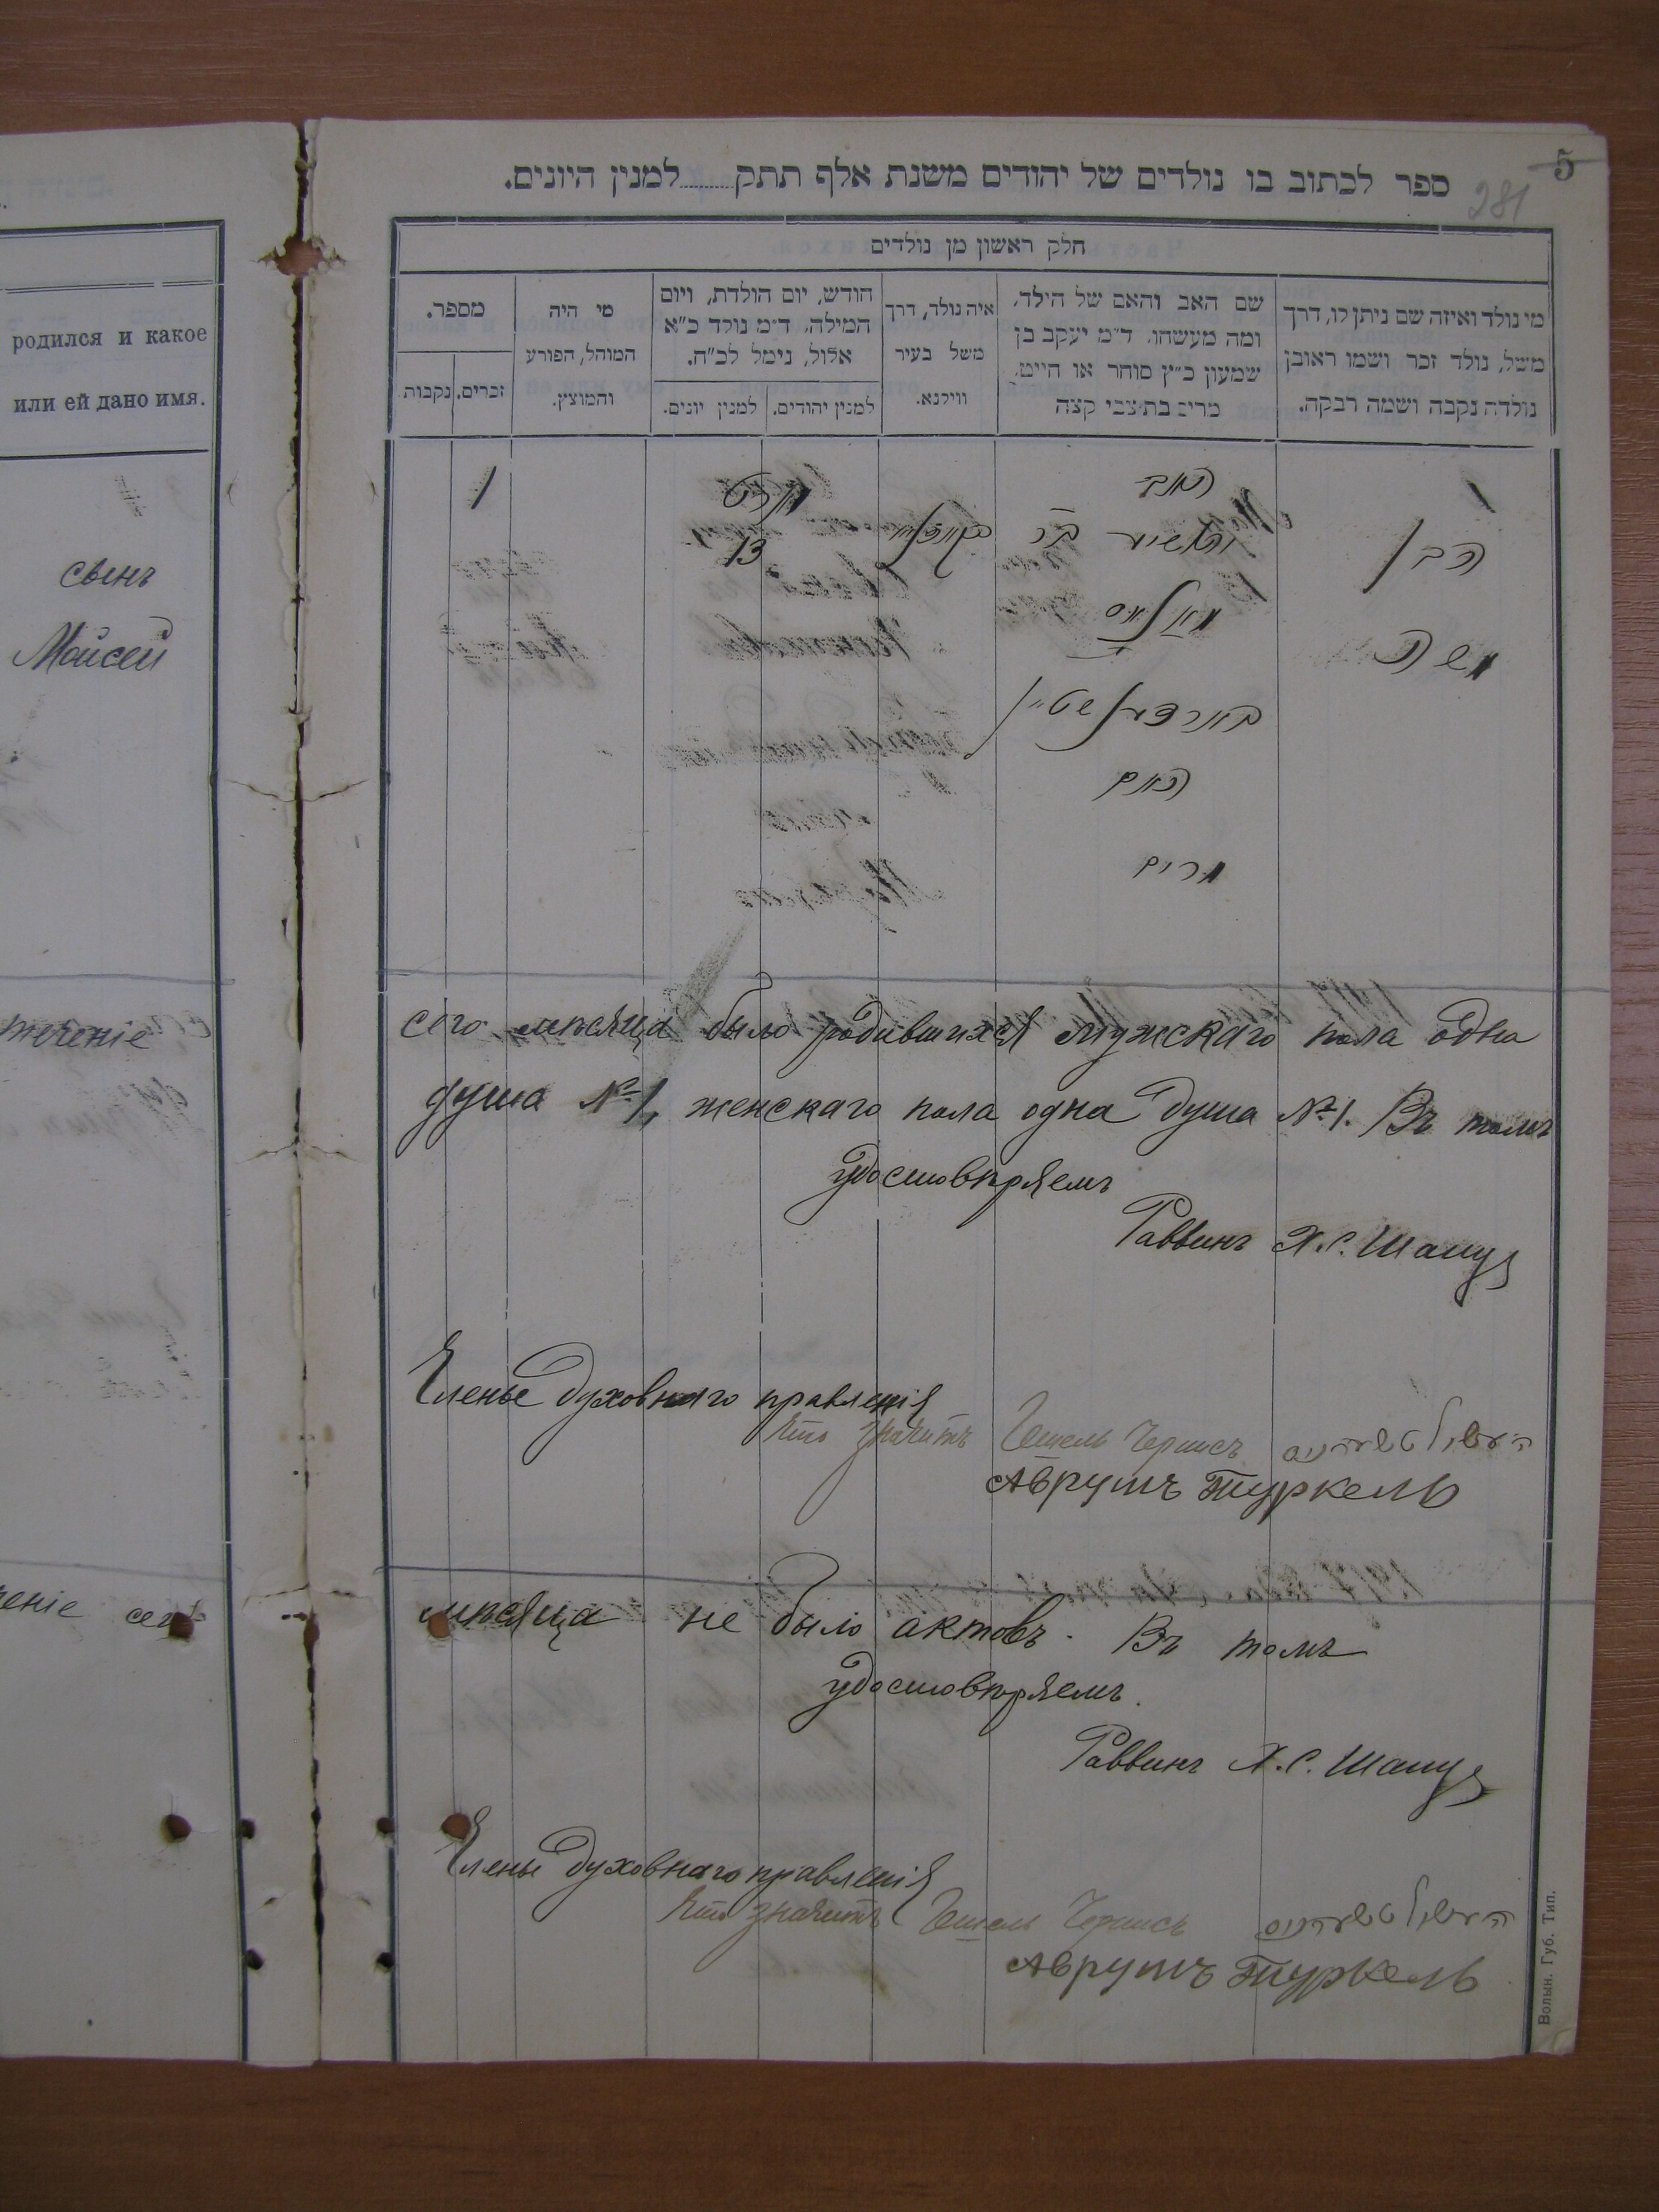 родился и какое
или ей дано имя.
сынъ
Мойсей
течение
сего
5
281
ספר לכתוב בו נולדים של יהודים משנת אלף תתק........למנין היונים.
חלק ראשון מן נולדים
מי נולד ואיזה שם ניתן לו, דרך
משל, נולד זכר ושמו ראובן
נולדה נקבה ושמה רבקה.
שם האב והאם של הילד,
ומה מעשהו. ד״מ יעקב בן
שמעון כ״ץ סוחר או חייט,
מרים בת צבי קצה
איה נולד, דרך
משל בעיר
ווילנא.
חודש, יום הולדת, ויום
המילה, ד״מ נולד כ״א
אלול, נימל לכ״ח.
למנין יהודים.
למנין יונים.
מי היה
המוהל, הפורע
והמוצץ.
מספר.
זכרים.
נקבות.
הבן
משה
האב
בורדענשטיין
האם
מרים
13
1
сего месяца было родившихся мужскаго пола одна
душа № 1, женскаго пола одна душа № 1. Въ томъ
удостовѣряемъ
Раввинъ Х. С. Шапу
Члены духовнаго правленія
Што значитъ Гешель Чернисъ
Аврумъ Туркель
мѣсяца не было актовъ. Въ томъ
удостовѣряемъ.
Раввинъ Х. С. Шапу
Члены духовнаго правленія
Што значитъ Гешель Чернисъ
Аврумъ Туркель
Волын. Губ. Тип.